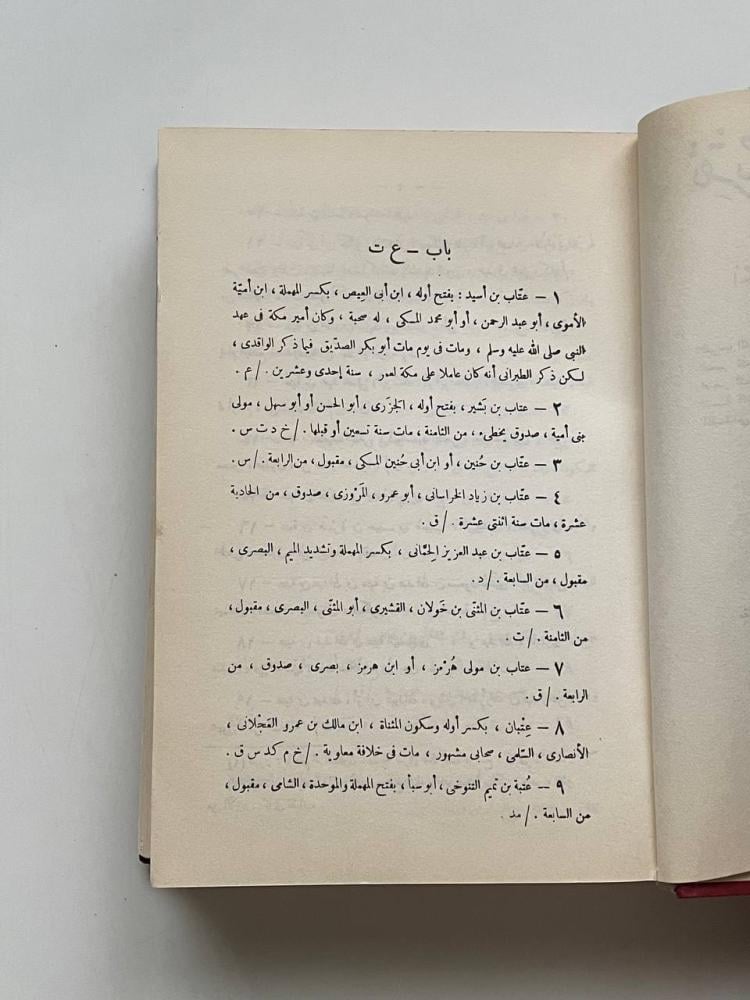 باب – ع ت
١ – عتّاب بن أسيد : بفتح أوله ، ابن أبى العِيص ، بكسر المهملة ، ابن أميّة
الأموى ، أبو عبد الرحمن ، أو أبو محمد المسكى ، له صحبة ، وكان أمير مكة فى عهد
النبى صلى الله عليه وسلم ، ومات فى يوم مات أبو بكر الصدّيق فيما ذكر الواقدى ،
لكن ذكر الطبرانى أنه كان عاملا على مكة لعمر ، سنة إحدى وعشرين . / ع .
٢ – عتاب بن بَشير ، بفتح أوله ، الجَزَرى ، أبو الحسن أو أبو سهل ، مولى
بنى أمية ، صدوق يخطىء ، من الثامنة ، مات سنة تسعين أو قبلها . / خ د ت س .
٣ – عتّاب بن حُنين ، أو ابن أبى حُنين المسكى ، مقبول ، من الرابعة . / س .
٤ – عتّاب بن زياد الخراسانى ، أبو عمرو ، المَرْوَزى ، صدوق ، من الحادية
عشرة ، مات سنة اثنتى عشرة . / ق .
٥ – عتّاب بن عبد العزيز الحِمّانى ، بكسر المهملة وتشديد الميم ، البصرى ،
مقبول ، من السابعة . / د .
٦ – عتّاب بن المثنّى بن خَولان ، القشيرى ، أبو المثنّى ، البصرى ، مقبول ،
من الثامنة . / ت .
٧ – عتاب بن مولى هُرْمز ، أو ابن هرمز ، بصرى ، صدوق ، من
الرابعة . / ق .
٨ – عِتْبان ، بكسر أوله وسكون المثناة ، ابن مالك بن عمرو العَجْلانى ،
الأنصارى ، السّلمى ، صحابى مشهور ، مات فى خلافة معاوية . / خ م كد س ق .
٩ – عُتبة بن تميم التنوخى ، أبو سبأ ، بفتح المهملة والموحدة ، الشامى ، مقبول ،
من السابعة . / مد .